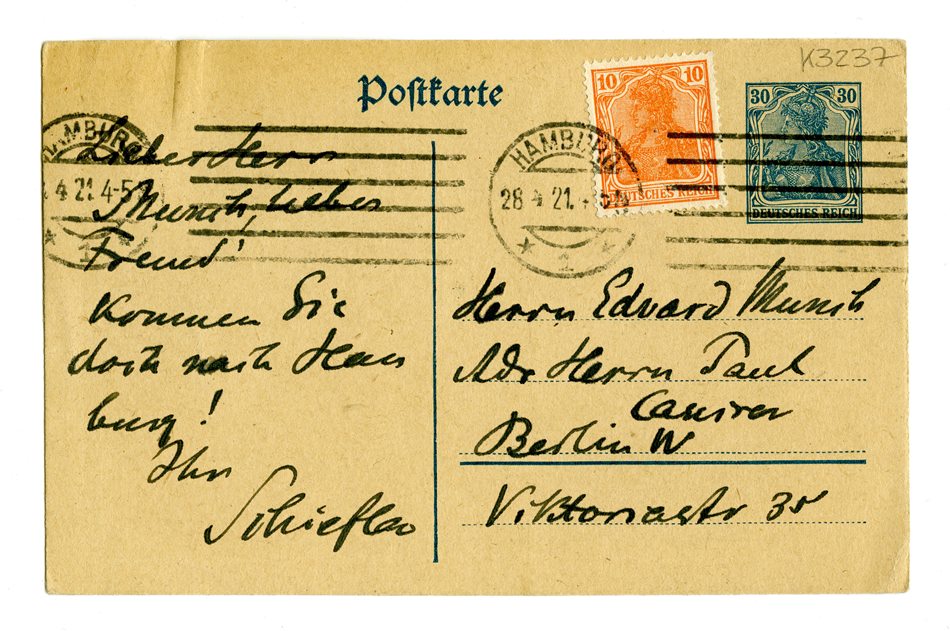 K3237
Postkarte
10 10
30 30
DEUTSCHES REICH
DEUTSCHES REICH
HAMBURG
4 21 4-5
1
HAMBURG
28 4 21. 4-5 N
1
Lieber Herr
Munch, lieber
Freund!
Kommen Sie
doch nach Ham
burg!
Ihr
Schiefler
Herrn Edvard Munch
Adr Herrn Paul
Cassirer
Berlin W
Viktoriastr 35